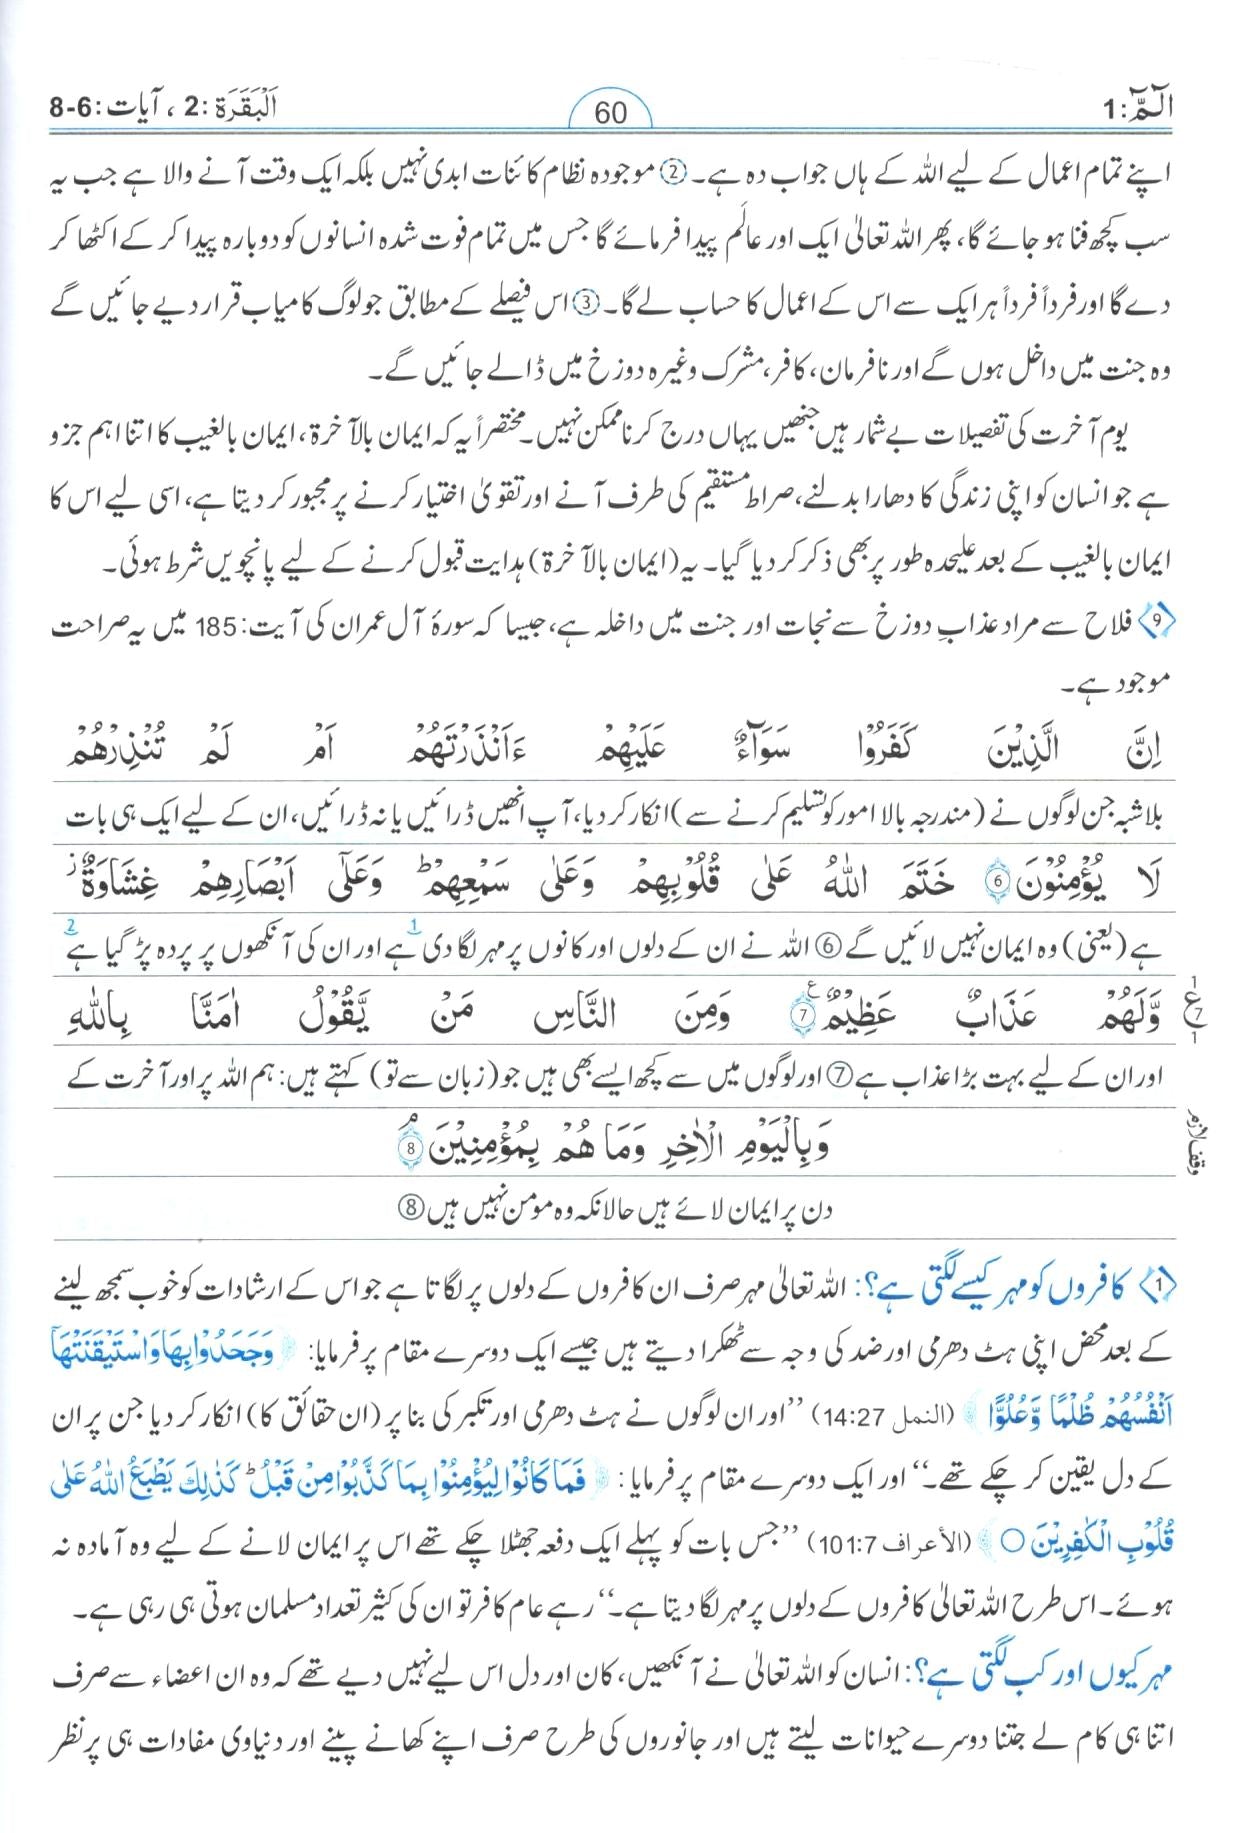 الٓمّٓ : 1
60
اَلْبَقَرَة : 2 ، آیات : 6-8
اپنے تمام اعمال کے لیے اللہ کے ہاں جواب دہ ہے۔ ② موجودہ نظام کائنات ابدی نہیں بلکہ ایک وقت آنے والا ہے جب یہ
سب کچھ فنا ہو جائے گا، پھر اللہ تعالیٰ ایک اور عالَم پیدا فرمائے گا جس میں تمام فوت شدہ انسانوں کو دوبارہ پیدا کر کے اکٹھا کر
دے گا اور فرداً فرداً ہر ایک سے اس کے اعمال کا حساب لے گا۔ ③ اس فیصلے کے مطابق جو لوگ کامیاب قرار دیے جائیں گے
وہ جنت میں داخل ہوں گے اور نافرمان، کافر، مشرک وغیرہ دوزخ میں ڈالے جائیں گے۔
یوم آخرت کی تفصیلات بے شمار ہیں جنھیں یہاں درج کرنا ممکن نہیں۔ مختصراً یہ کہ ایمان بالآخرۃ، ایمان بالغیب کا اتنا اہم جزو
ہے جو انسان کو اپنی زندگی کا دھارا بدلنے، صراط مستقیم کی طرف آنے اور تقویٰ اختیار کرنے پر مجبور کر دیتا ہے، اسی لیے اس کا
ایمان بالغیب کے بعد علیحدہ طور پر بھی ذکر کر دیا گیا۔ یہ (ایمان بالآخرۃ) ہدایت قبول کرنے کے لیے پانچویں شرط ہوئی۔
﴿9﴾ فلاح سے مراد عذابِ دوزخ سے نجات اور جنت میں داخلہ ہے، جیسا کہ سورۂ آل عمران کی آیت: 185 میں یہ صراحت
موجود ہے۔
اِنَّ الَّذِيْنَ كَفَرُوْا سَوَآءٌ عَلَيْهِمْ ءَاَنْذَرْتَهُمْ اَمْ لَمْ تُنْذِرْهُمْ
بلاشبہ جن لوگوں نے (مندرجہ بالا امور کو تسلیم کرنے سے) انکار کر دیا، آپ انھیں ڈرائیں یا نہ ڈرائیں، ان کے لیے ایک ہی بات
لَا يُؤْمِنُوْنَ ⑥ خَتَمَ اللّٰهُ عَلٰى قُلُوْبِهِمْ وَعَلٰى سَمْعِهِمْ ؕ وَعَلٰٓى اَبْصَارِهِمْ غِشَاوَةٌ ؗ
ہے (یعنی) وہ ایمان نہیں لائیں گے ⑥ اللہ نے ان کے دلوں اور کانوں پر مہر لگا دی¹ ہے اور ان کی آنکھوں پر پردہ پڑ گیا ہے²
وَّلَهُمْ عَذَابٌ عَظِيْمٌ ⑦ وَمِنَ النَّاسِ مَنْ يَّقُوْلُ اٰمَنَّا بِاللّٰهِ
اور ان کے لیے بہت بڑا عذاب ہے ⑦ اور لوگوں میں سے کچھ ایسے بھی ہیں جو (زبان سے تو) کہتے ہیں: ہم اللہ پر اور آخرت کے
وَبِالْيَوْمِ الْاٰخِرِ وَمَا هُمْ بِمُؤْمِنِيْنَ ⑧
وقف لازم
دن پر ایمان لائے ہیں حالانکہ وہ مومن نہیں ہیں ⑧
﴿1﴾ کافروں کو مہر کیسے لگتی ہے؟: اللہ تعالیٰ مہر صرف ان کافروں کے دلوں پر لگاتا ہے جو اس کے ارشادات کو خوب سمجھ لینے
کے بعد محض اپنی ہٹ دھرمی اور ضد کی وجہ سے ٹھکرا دیتے ہیں جیسے ایک دوسرے مقام پر فرمایا: ﴿ وَجَحَدُوْا بِهَا وَاسْتَيْقَنَتْهَآ
اَنْفُسُهُمْ ظُلْمًا وَّعُلُوًّا ﴾ (النمل 14:27) ’’اور ان لوگوں نے ہٹ دھرمی اور تکبر کی بنا پر (ان حقائق کا) انکار کر دیا جن پر ان
کے دل یقین کر چکے تھے۔‘‘ اور ایک دوسرے مقام پر فرمایا: ﴿ فَمَا كَانُوْا لِيُؤْمِنُوْا بِمَا كَذَّبُوْا مِنْ قَبْلُ ؕ كَذٰلِكَ يَطْبَعُ اللّٰهُ عَلٰى
قُلُوْبِ الْكٰفِرِيْنَ ○ ﴾ (الأعراف 101:7) ’’جس بات کو پہلے ایک دفعہ جھٹلا چکے تھے اس پر ایمان لانے کے لیے وہ آمادہ نہ
ہوئے۔ اس طرح اللہ تعالیٰ کافروں کے دلوں پر مہر لگا دیتا ہے۔‘‘ رہے عام کافر تو ان کی کثیر تعداد مسلمان ہوتی ہی رہی ہے۔
مہر کیوں اور کب لگتی ہے؟: انسان کو اللہ تعالیٰ نے آنکھیں، کان اور دل اس لیے نہیں دیے تھے کہ وہ ان اعضاء سے صرف
اتنا ہی کام لے جتنا دوسرے حیوانات لیتے ہیں اور جانوروں کی طرح صرف اپنے کھانے پینے اور دنیاوی مفادات ہی پر نظر